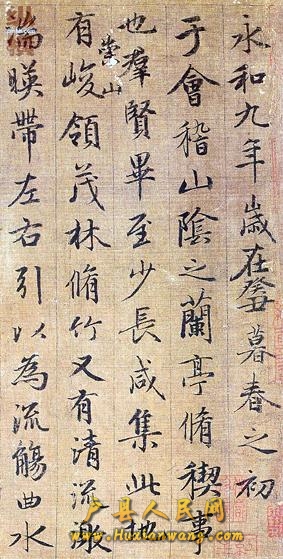 永和九年歲在癸丑暮春之初
于會稽山陰之蘭亭脩稧事
也羣賢畢至少長咸集此地
有崇山峻領茂林脩竹又有清流激
湍暎帶左右引以為流觴曲水
户县人民网
www.Huxianwang.com